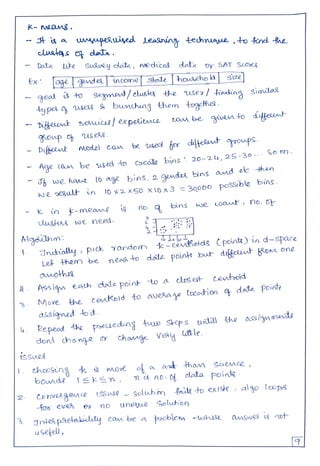 K- means.
- It is a unsupervised learning technique, to find the
clusters of data.
- Data like survey data, medical data or SAT scores
Ex: age | gender | income | state | household | size
- goal is to segment/cluster the user / finding similar
types of users & bunching them together.
- Different services / experience can be given to different
group of users.
- Different model can be used for different groups.
- Age can be used to create bins: 20-24, 25-30... so on.
- If we have 10 age bins, 2 gender bins and etc then
we result in 10 x 2 x 50 x 10 x 3 = 30000 possible bins.
- K in k-means is no. of bins we want, no. of
clusters we need.
Algorithm:
1 Initially, pick random k-centroids (points) in d-space
Let them be near to data points but different from one
another
2. Assign each data point to a closest centroid
3. Move the centroid to average location of data points
assigned to d.
4. Repeat the preceeding two steps until the assignments
dont change or change very little.
issues
1. choosing k is more of a art than science,
bounds 1 ≤ k ≤ n, n is no. of data points.
2. Convergence issue - solution fails to exist - algo loops
for ever or no unique solution
3. Interpretability can be a problem - answer is not
usefull,
9